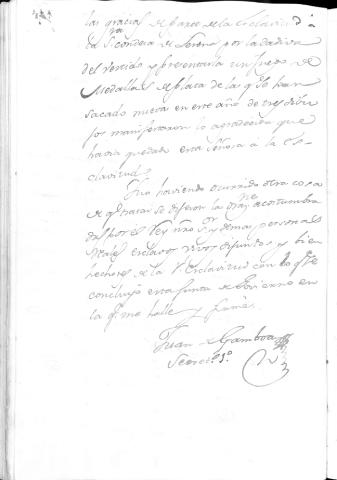 las gracias de parte de la Esclavitud à
la Sra Condesa de por la dadiva
del vestido y presentarla un juego de
Medallas de plata de las qe. se han
sacado nueva en este año de tres dibu
jos manifestaron lo agradecida que
havia quedado esta Señora a la Es-
clavitud.
No haviendo ocurrido otra cosa
de qe. tratar se dijeron las oraznes acostumbra
das por el Rey nro Sor y demas personas
Reales esclavos vivos difuntos y bien
hechores de la Rl. Esclavitud con lo qe. se
concluyó esta Junta de Govierno en
la qe. me halle y firmé.
Juan de Gamboa
Secretº. 1º.